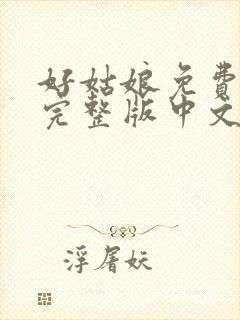 好姑娘免費
完整版中文
浮屠妖